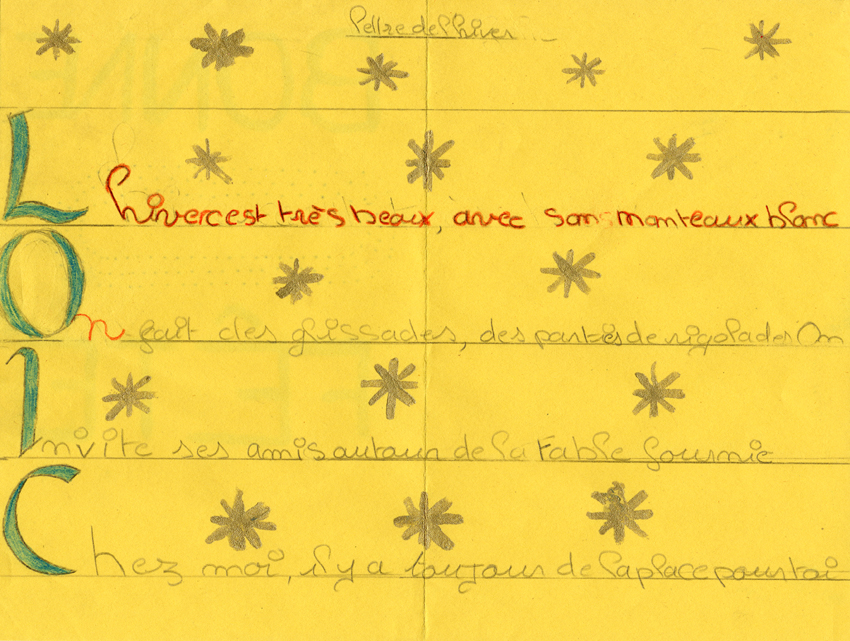 lettre de l'hiver
L'hiver c'est très beaux, avec son manteaux blanc
On fait des glissades, des parties de rigolades On
Invite ses amis autour de la table fournie
Chez moi, il y a toujours de la place pour toi